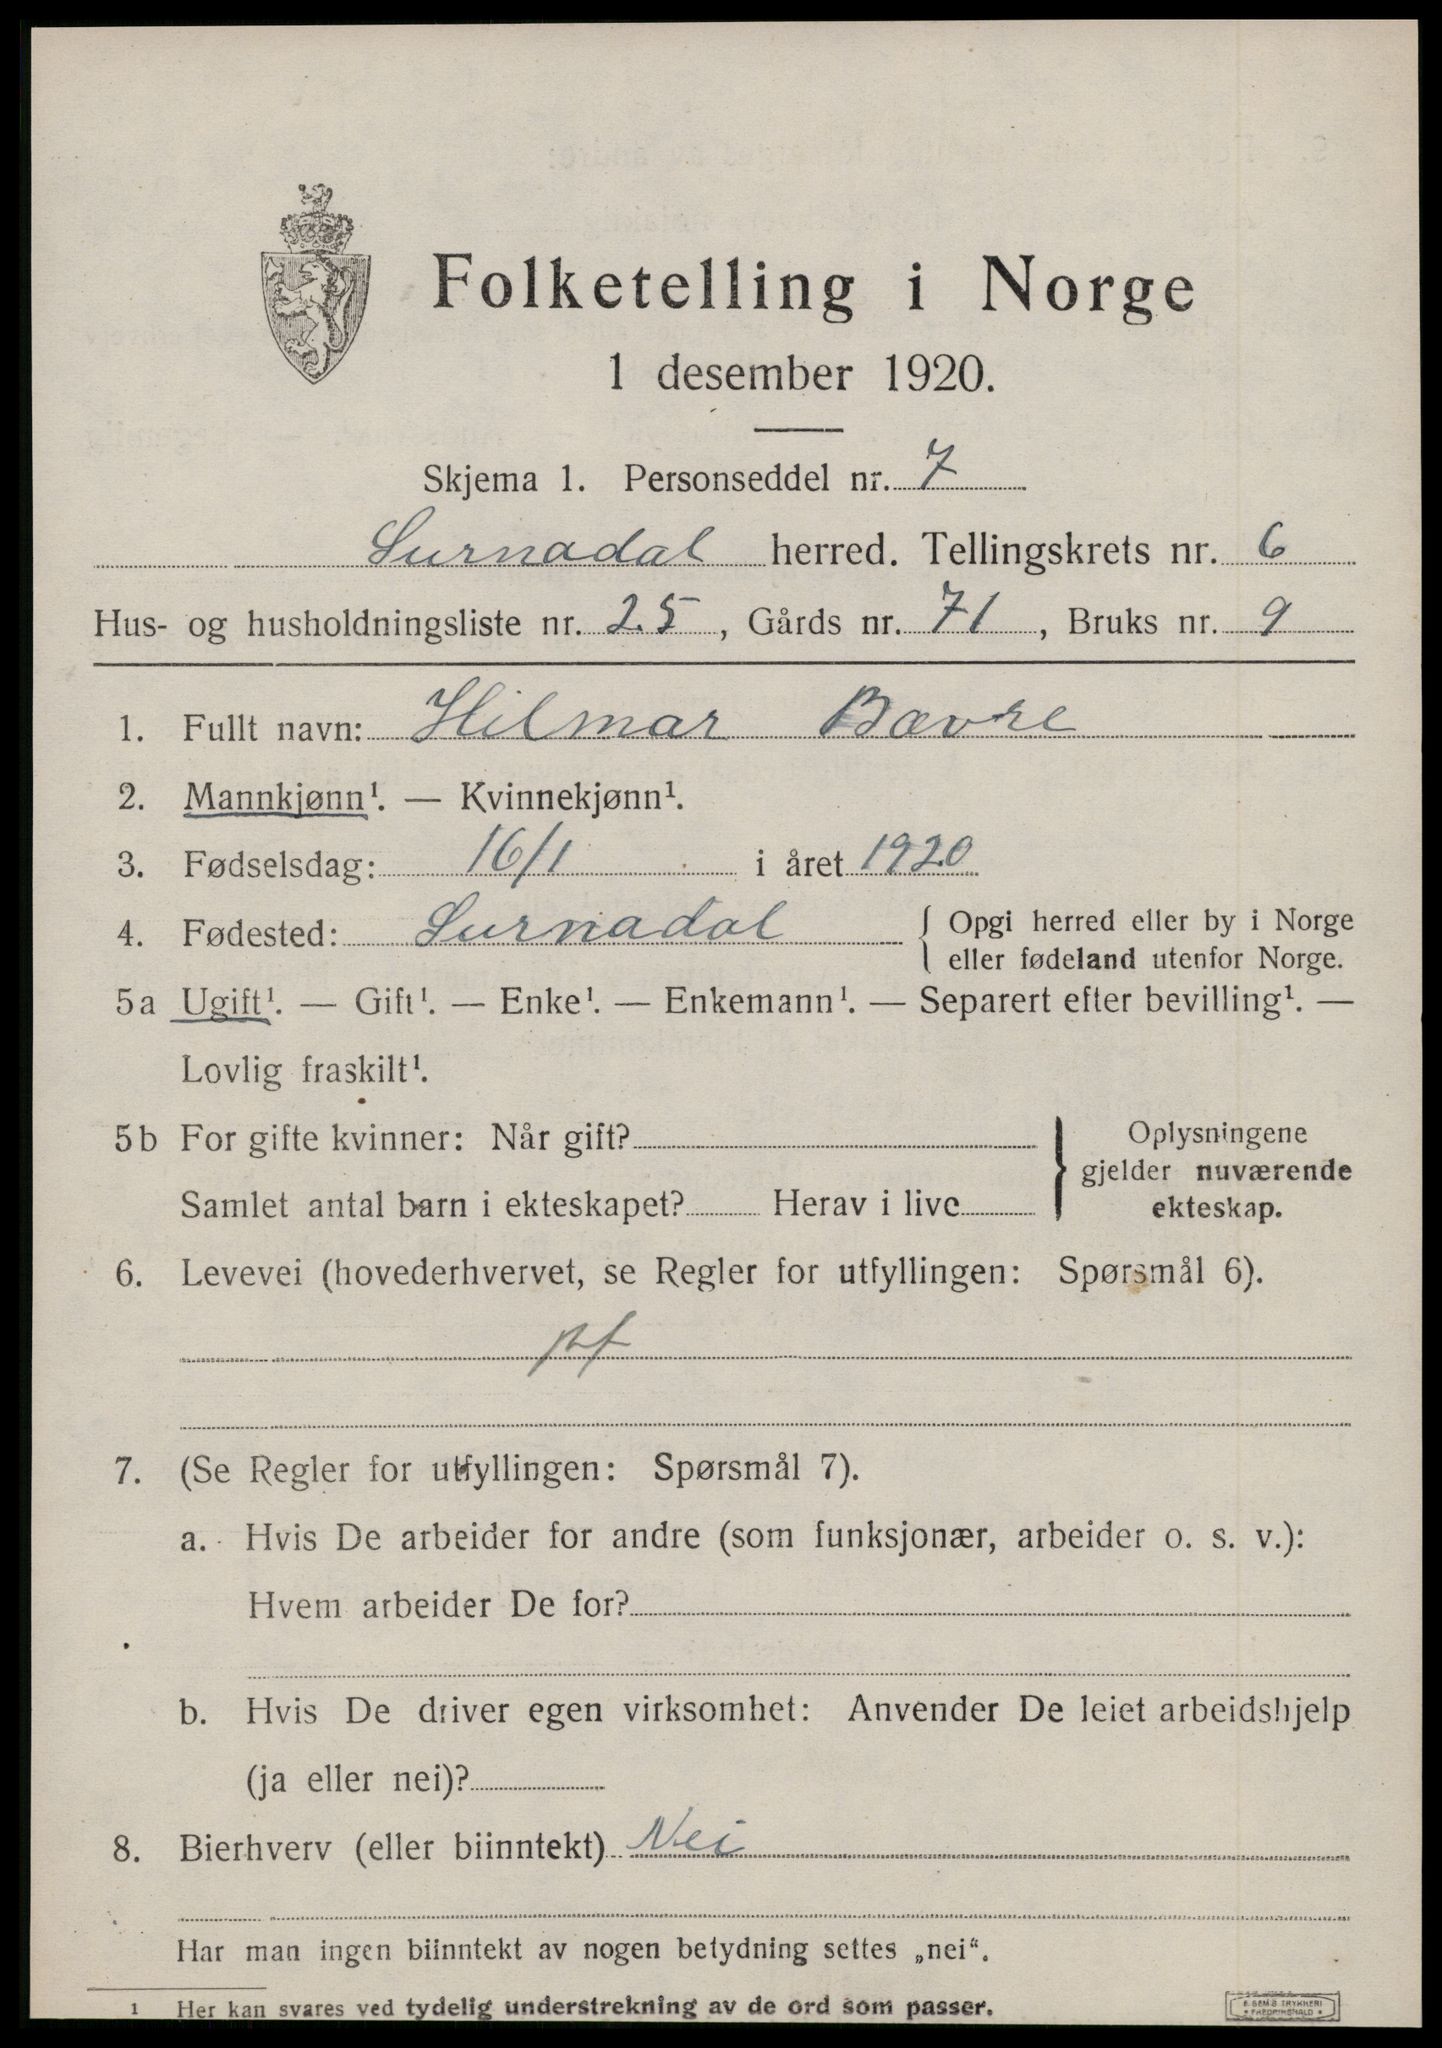 Folketelling i Norge
1 desember 1920.
Skjema 1. Personseddel nr. 7
Surnadal herred. Tellingskrets nr. 6
Hus- og husholdningsliste nr. 25, Gårds nr. 71, Bruks nr. 9
1. Fullt navn: Hilmar Bævre
2. Mannkjønn¹. — Kvinnekjønn¹.
3. Fødselsdag: 16/1 i året 1920
4. Fødested: Surnadal { Opgi herred eller by i Norge
eller fødeland utenfor Norge.
5a Ugift¹. — Gift¹. — Enke¹. — Enkemann¹. — Separert efter bevilling¹. —
Lovlig fraskilt¹.
5b For gifte kvinner: Når gift? } Oplysningene
gjelder nuværende
Samlet antal barn i ekteskapet? Herav i live ekteskap.
6. Levevei (hovederhvervet, se Regler for utfyllingen: Spørsmål 6).
pf
7. (Se Regler for utfyllingen: Spørsmål 7).
a. Hvis De arbeider for andre (som funksjonær, arbeider o. s. v.):
Hvem arbeider De for?
b. Hvis De driver egen virksomhet: Anvender De leiet arbeidshjelp
(ja eller nei)?
8. Bierhverv (eller biinntekt) Nei
Har man ingen biinntekt av nogen betydning settes „nei“.
1 Her kan svares ved tydelig understrekning av de ord som passer.
E. SEM'S TRYKKERI
FREDRIKSHALD